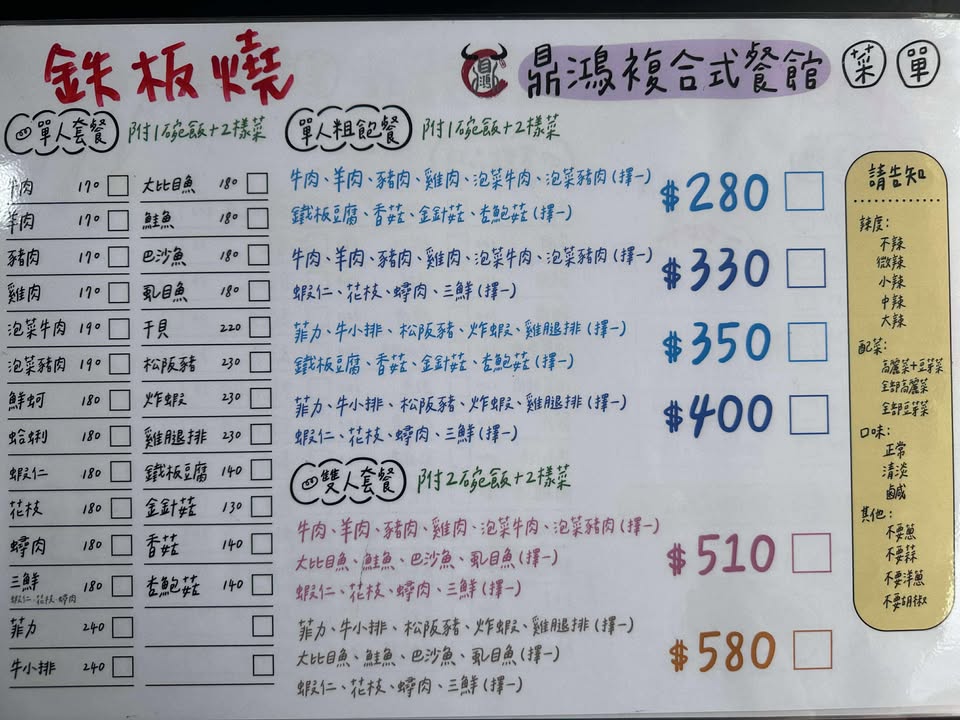 鉄板燒
鼎鴻
鼎鴻複合式餐館
菜單
單人套餐 附1碗飯+2樣菜
牛肉 170
羊肉 170
豬肉 170
雞肉 170
泡菜牛肉 190
泡菜豬肉 190
鮮蚵 180
蛤蜊 180
蝦仁 180
花枝 180
蟳肉 180
三鮮 180
蝦仁、花枝、蟳肉
菲力 240
牛小排 240
大比目魚 180
鮭魚 180
巴沙魚 180
虱目魚 180
干貝 220
松阪豬 230
炸蝦 230
雞腿排 230
鐵板豆腐 140
金針菇 130
香菇 140
杏鮑菇 140
單人粗飽餐 附1碗飯+2樣菜
牛肉、羊肉、豬肉、雞肉、泡菜牛肉、泡菜豬肉(擇一)
鐵板豆腐、香菇、金針菇、杏鮑菇(擇一)
$280
牛肉、羊肉、豬肉、雞肉、泡菜牛肉、泡菜豬肉(擇一)
蝦仁、花枝、蟳肉、三鮮(擇一)
$330
菲力、牛小排、松阪豬、炸蝦、雞腿排(擇一)
鐵板豆腐、香菇、金針菇、杏鮑菇(擇一)
$350
菲力、牛小排、松阪豬、炸蝦、雞腿排(擇一)
蝦仁、花枝、蟳肉、三鮮(擇一)
$400
雙人套餐 附2碗飯+2樣菜
牛肉、羊肉、豬肉、雞肉、泡菜牛肉、泡菜豬肉(擇一)
大比目魚、鮭魚、巴沙魚、虱目魚(擇一)
蝦仁、花枝、蟳肉、三鮮(擇一)
$510
菲力、牛小排、松阪豬、炸蝦、雞腿排(擇一)
大比目魚、鮭魚、巴沙魚、虱目魚(擇一)
蝦仁、花枝、蟳肉、三鮮(擇一)
$580
請告知
辣度:
不辣
微辣
小辣
中辣
大辣
配菜:
高麗菜+豆芽菜
全部高麗菜
全部豆芽菜
口味:
正常
清淡
鹹
其他:
不要蔥
不要蒜
不要洋蔥
不要胡椒